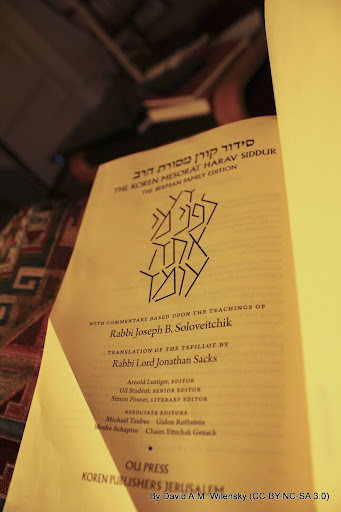 סידור קורן מסורת הרב
THE KOREN MESORAT HARAV SIDDUR
THE BERMAN FAMILY EDITION
דע
לפני מי
אתה
עומד
WITH COMMENTARY BASED UPON THE TEACHINGS OF
Rabbi Joseph B. Soloveitchik
TRANSLATION OF THE TEFILLOT BY
Rabbi Lord Jonathan Sacks
Arnold Lustiger, EDITOR
Gil Student, SENIOR EDITOR
Simon Posner, LITERARY EDITOR
ASSOCIATE EDITORS
Michael Taubes Gidon Rothstein
Moshe Schapiro Chaim Yitzchak Genack
OU PRESS
KOREN PUBLISHERS JERUSALEM
By David A.M. Wilensky (CC BY-NC-SA 3.0)